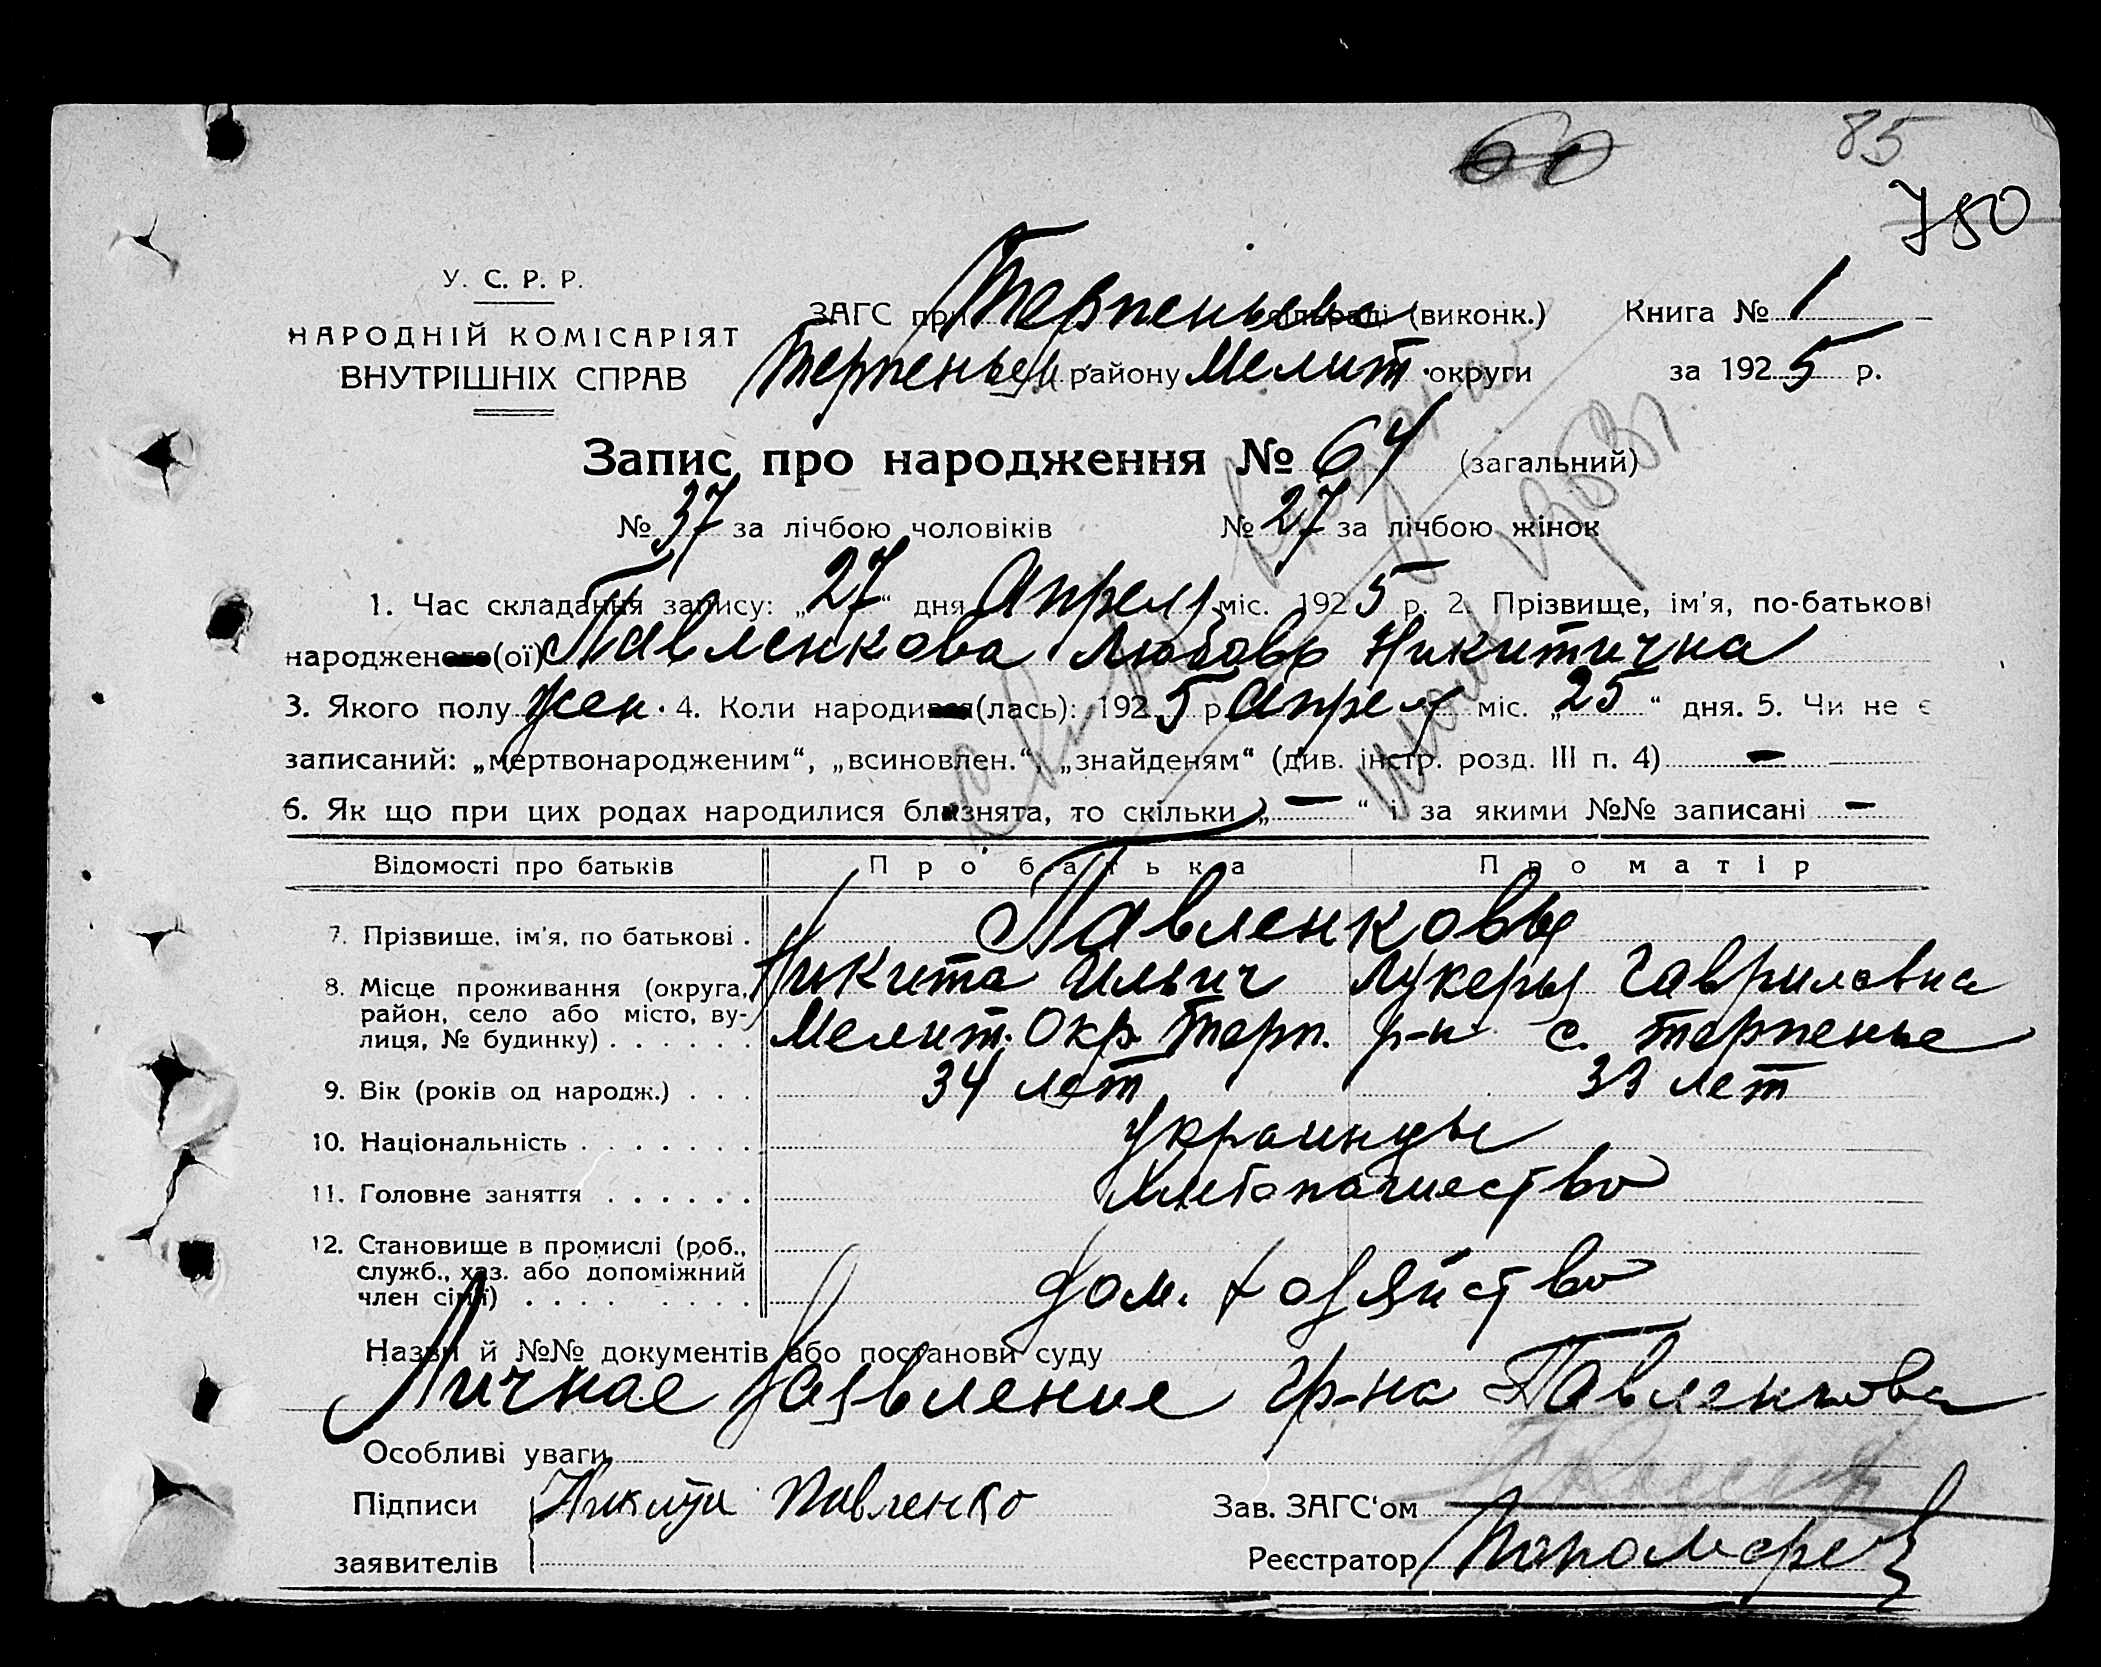 60 85
780
У. С. Р. Р.
НАРОДНІЙ КОМІСАРІЯТ
ВНУТРІШНІХ СПРАВ
ЗАГС при Терпеньевс (виконк.) Книга № 1
Терпеньев району Мелит. округи за 1925 р.
Запис про народження № 64 (загальний)
№ 37 за лічбою чоловіків № 27 за лічбою жінок
1. Час складання запису: „27“ дня Апреля міс. 1925 р. 2. Прізвище, ім'я, по-батькові
народженого(ої) Павленкова Любовь Никитична
3. Якого полу жен. 4. Коли народився(лась): 1925 р. Апреля міс. „25“ дня. 5. Чи не є
записаний: „мертвонародженим“, „всиновлен.“, „знайденям“ (див. інстр. розд. III п. 4) —
6. Як що при цих родах народилися близнята, то скільки „—“ і за якими №№ записані —
Відомості про батьків Про батька Про матір
7. Прізвище, ім'я, по батькові . Павленковы
Никита Ильич Лукерья Гавриловна
8. Місце проживання (округа, район, село або місто, ву-
лиця, № будинку) . . . . . . Мелит. Окр. Терп. р-н с. Терпенье
9. Вік (років од народж.) . . . 34 лет 33 лет
10. Національність . . . . . . . Украинцы
11. Головне заняття . . . . . . Хлебопашество
12. Становище в промислі (роб.,
служб., хаз. або допоміжний
член сім'ї) . . . . . . . . Дом. хозяйство
Назви й №№ документів або постанови суду
Личное Заявление гр-на Павленкова
Особливі уваги
Підписи Никита Павленко Зав. ЗАГС'ом
заявителів Реєстратор Пономарев